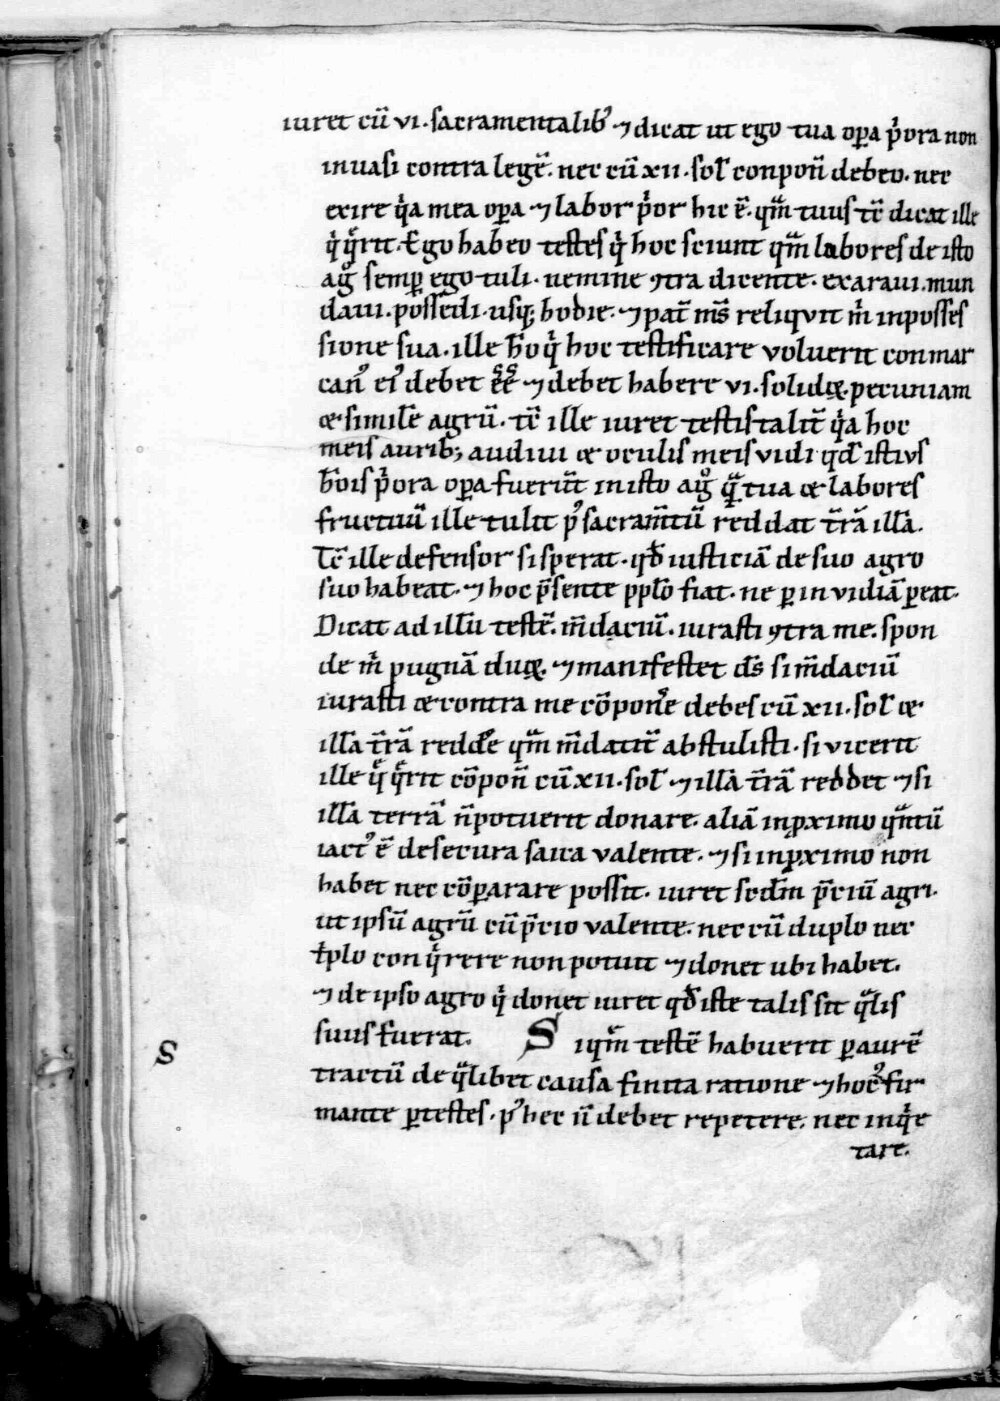 iuret cū vi. sacramentalib᷒ ⁊ dicat ut ego tua opa pͥora non
inuasi contra legē. nec cū xii. sol conpon̄ debeo. nec
exire qͥa mea opa ⁊ labor pͥor hic ē. qm̄ tuus tē dicat ille
qͥ qͥrit. Ego habeo testes qͥ hoc sciunt qm̄ labores de isto
agͦ semp ego tuli. nemine ꝯtra dicente. exaraui. mun
daui. possedi. usq; hodie. ⁊ pat̄ ms̄ reliqvit m̄ inposses
sione sua. ille ħo qͥ hoc testificare voluerit conmar
can᷒ ei᷒ debet eē ⁊ debet habere vi. solidoꝝ. pecuniam
⁊ similē agrū. tē ille iuret testis talit̄ qͥa hoc
meis aurib; audiui ⁊ oculis meis vidi qd istivs
ħois pͥora opa fuerūt in isto agͦ qͣ tua ⁊ labores
fructuū ille tulit p᷒ sacram̄tū reddat t̄rā illā.
Tē ille defensor si sperat. qđ iusticiā de suo agro
suo habeat. ⁊ hoc p̄sente pplō fiat. ne ꝑ in vidiā ꝑeat.
Dicat ad illū testē. m̄daciū. iurasti ꝯtra me. spon
de m̄ pugnā duoꝝ. ⁊ manifestet ds̄ si m̄daciū
iurasti ⁊ contra me cōponēe debes cū xii. sol ⁊
illā t̄rā reddē qm̄ m̄datit̄ abstulisti. si vicerit
ille qͥ qͥrit cōpon̄ cū xii. sol ⁊ illā t̄rā reddet ⁊ si
illā terrā n̄ potuerit donare. aliā inꝓximo qͣntū
iact᷒ ē de secura saica valente. ⁊ si inꝓximo non
habet nec cōꝑarare possit. iuret scdm̄ p̄ciū agri.
ut ipsū agrū cū p̄cio valente. nec cū duplo nec
tͥplo con qͥrere non potuit ⁊ donet ubi habet.
⁊ de ipso agro qͥ donet iuret qđ iste talis sit qͣlis
suus fuerat. S iqͥm testē habuerit ꝑ aurē
S
tractū de qͣlibet causa finita ratione ⁊ hoc fir
mante ꝑ testes. p᷒ hec n̄ debet repetere. nec inqͥe
tare.